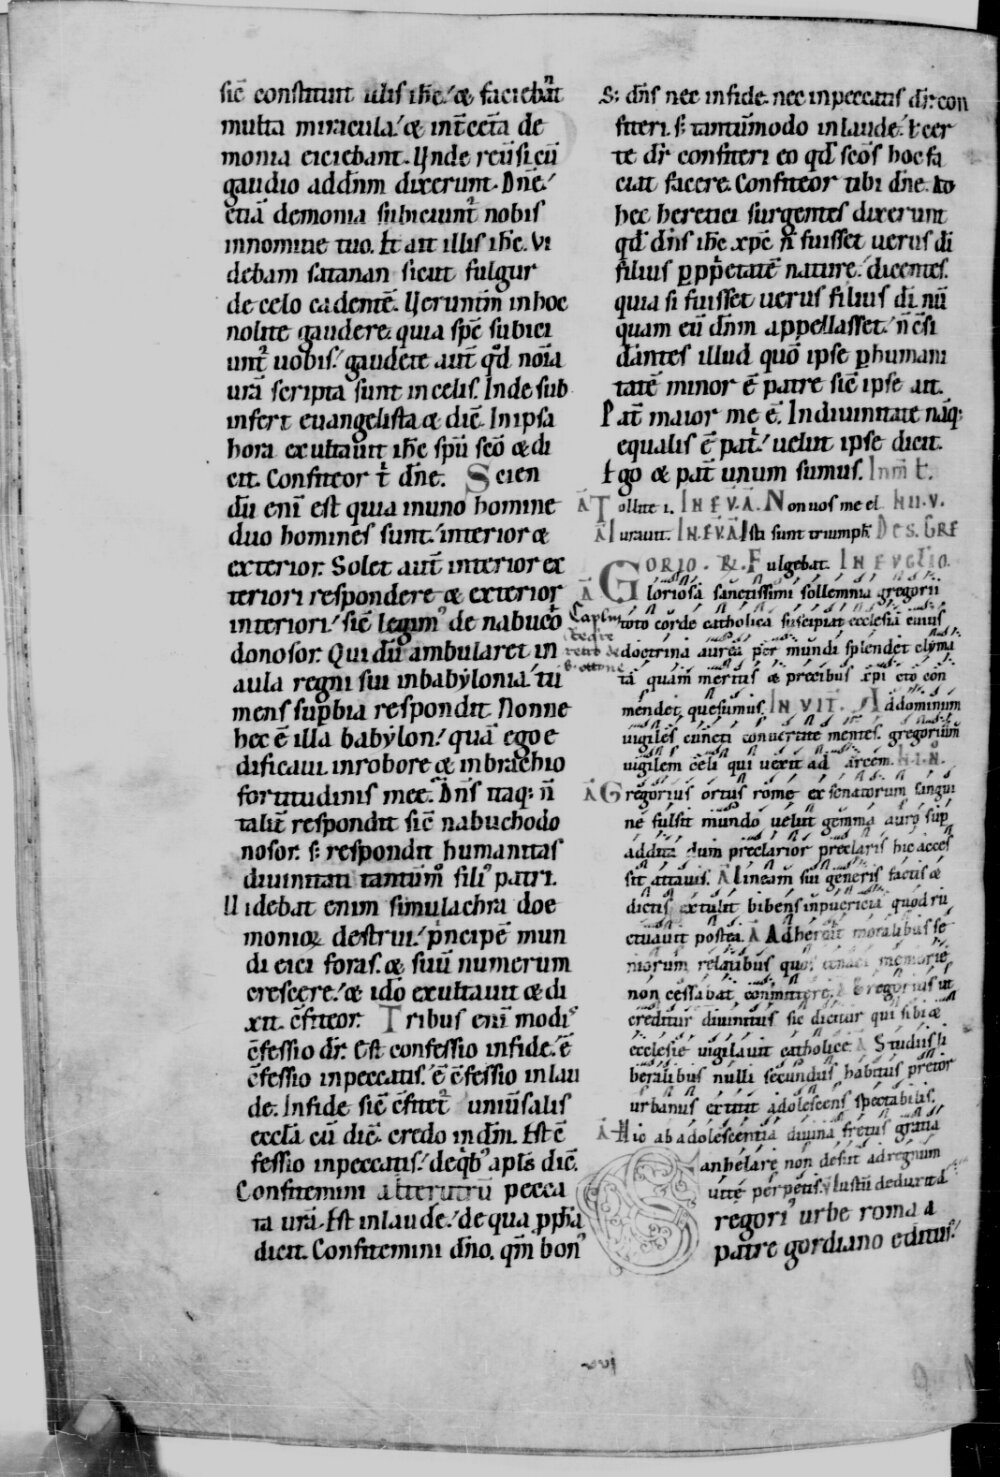 sic̄ constituit illis ih̄c. & faciebant̄
multa miracula. & int̄ cet̄a de
monia eiciebant. Unde reūsi cū
gaudio ad dn̄m dixerunt. Dn̄e.
etiā demonia subiciunt̄ nobis
in nomine tuo. Et ait illis ih̄c. Vi
debam satanan sicut fulgur
de celo cadentē. Uerunt̄m in hoc
nolite gaudere. quia sp̄c subici
unt̄ uobis. gaudete aut̄ qd̄ noīa
ur̄a scripta sunt in celis. Inde sub
infert euangelista & dic̄. In ipsa
hora exultauit ih̄c spū scō & di
cit. Confiteor t̄ dn̄e. Scien
dū enī est quia in uno homine
duo homines sunt. interior &
exterior. Solet aut̄ interior ex
teriori respondere & exterior
interiori. sic̄ legim' de nabuco
donosor. Qui dū ambularet in
aula regni sui in babylonia. tu
mens suꝑbia respondit. Nonne
hec ē illa babylon. quā ego e
dificaui. in robore & in brachio
fortitudinis mee. Dn̄s itaq; n̄
talit̄ respondit sic̄ nabuchodo
nosor. s; respondit humanitas
diuinitati tantum̄ fili' patri.
Uidebat enim simulachra doe
monioꝝ destrui. pͥncipē mun
di eici foras. & suū numerum
crescere. & idō exultauit & di
xit. c̄fiteor. Tribus enī modis
c̄fessio dr̄. Est confessio in fide. ē
c̄fessio in peccatis. ē c̄fessio in lau
de. In fide sic̄ c̄fitet̄ uniūsalis
eccl̄a cū dic̄. credo in dm̄. Est c̄
fessio in peccatis. de qb' apl̄s dic̄.
Confitemini alterutrū pecca
ta ur̄a. Est in laude. de qua ꝓph̄a
dicit. Confitemini dn̄o. qm̄ bon'
S; dn̄s nec in fide. nec in peccatis dr̄ con
fiteri. s; tantūmodo in laude. Et cer
te dr̄ confiteri eo qd̄ scōs hoc fa
ciat facere. Confiteor tibi dn̄e. Ad
hec heretici surgentes dixerunt
qd̄ dn̄s ih̄c xp̄c n̄ fuisset uerus dī
filius ꝑ ꝓp̄etatē nature. dicentes.
quia si fuisset uerus filius dī. nū
quam eū dn̄m appellasset. n̄ c̄si
dantes illud quō ipse ꝑ humani
tatē minor ē patre sic̄ ipse ait.
Pat̄ maior me ē. In diuinitate naq;
equalis ē pat̄. uelut ipse dicit.
Ego & pat̄ unum sumus.
Ā Tollite i. IN EV. Ā. Non uos me el. HII. V.
Ā Iurauit. IN. EV. Ā Isti sunt triumph̄. DE S. GRE
GORIO. R. Fulgebat. IN EVGLIO.
Ā Gloriosa sanctissimi sollemnia gregorii
toto corde catholica suscipiat ecclesia cuius
doctrina aurea per mundi splendet clyma
ta quam meritis & precibus xp̄i eto con
mendet quesumus. INVIT. Ad dominum
uigiles cuncti conuertite mentes. gregorium
uigilem celi qui uexit ad arcem. I. N.
Ā Gregorius ortus rome ex senatorum sangui
ne fulsit mundo uelut gemma auro sup
addita dum preclarior preclaris hic acces
sit attauis. Ā Lineam sui generis factis &
dictis extulit bibens in puericia quod ru
ctuauit postea. Ā Adherens moralibus se
niorum relatibus quos memorie
non cessabat conmittere. Ā Gregorius ut
creditur diuinitus sic dicitur qui sibi &
ecclesie uigilauit catholice. Ā Studiis li
beralibus nulli secundus habitus pretor
urbanus extitit adolescens spectabilis.
Ā Hic ab adolescentia diuina fretus gratia
anhelare non desiit ad regnum
uite perpetis.
Gregori' urbe roma a
patre gordiano editus.
xvi